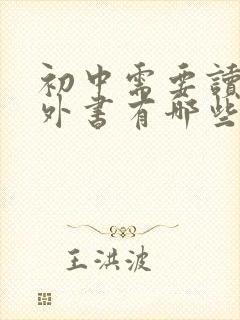 初中需要讀
外書有哪些
王洪波